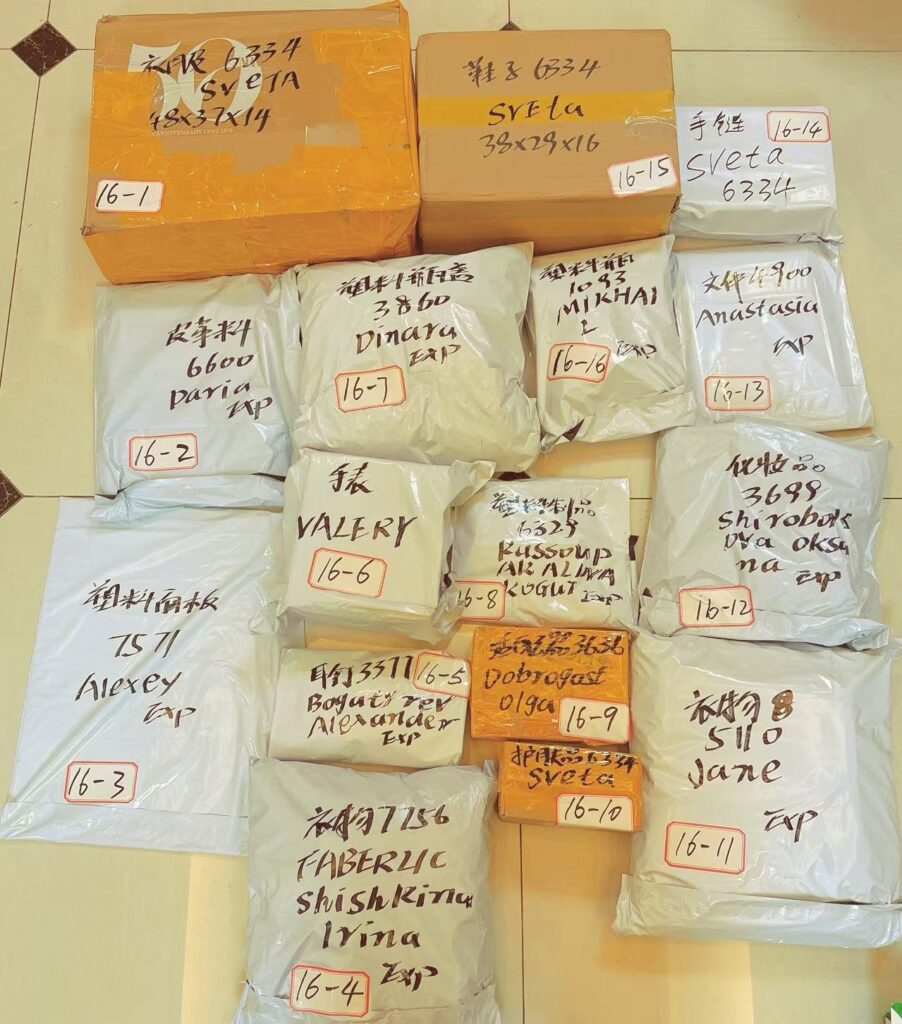 衣服 6334
SVETA
48x37x14
16-1
鞋子 6334
SVEta
38x29x16
16-15
手链
16-14
Sveta
6334
皮革料
6600
Daria
Exp
16-2
塑料瓶盖
3860
Dinara
Exp
16-7
塑料瓶
1093
MIKHAI
L
Exp
16-16
文件4900
Anastasia
Exp
16-13
手表
VALERY
16-6
塑料制品
6329
Russoup
AK ALINA
KOGUT Exp
16-8
化妆品
3699
Shirobok
ova oksa
na Exp
16-12
塑料面板
7571
Alexey
Exp
16-3
耳钉3377
16-5
Bogatyrev
Alexander
Exp
3636
Dobrogast
Olga
16-9
护肤品6334
Sveta
16-10
衣物
5110
Jane
Exp
16-11
衣物7756
FABERLIC
Shishkina
Irina
Exp
16-4